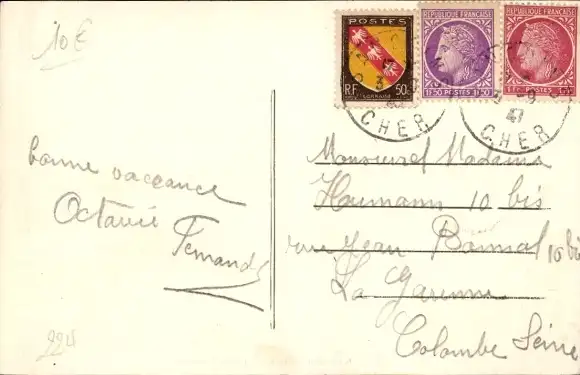 10€
POSTES
RF 50c
LORRAINE
REPUBLIQUE FRANÇAISE
1F50 POSTES 1F50
REPUBLIQUE FRANÇAISE
1F POSTES
CHER
3 9
47
CHER
bonne vaccance
Octavie
Fernand
Monsieur et Madame
Haumann 10 bis
rue Jean 10 bis
La Garenne
Colombe Seine